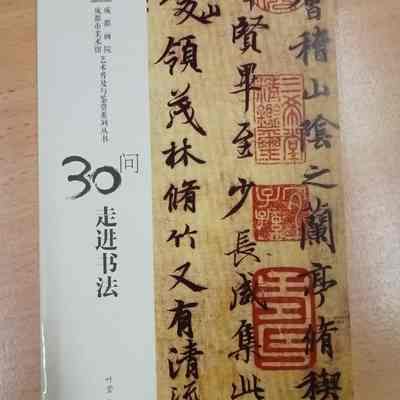 成都画院
成都市美术馆
艺术普及与鉴赏系列丛书
30问
走进书法
會稽山陰之蘭亭脩禊
賢畢至少長咸集此
領茂林脩竹又有清流
三希堂精鑑璽
宜子孫